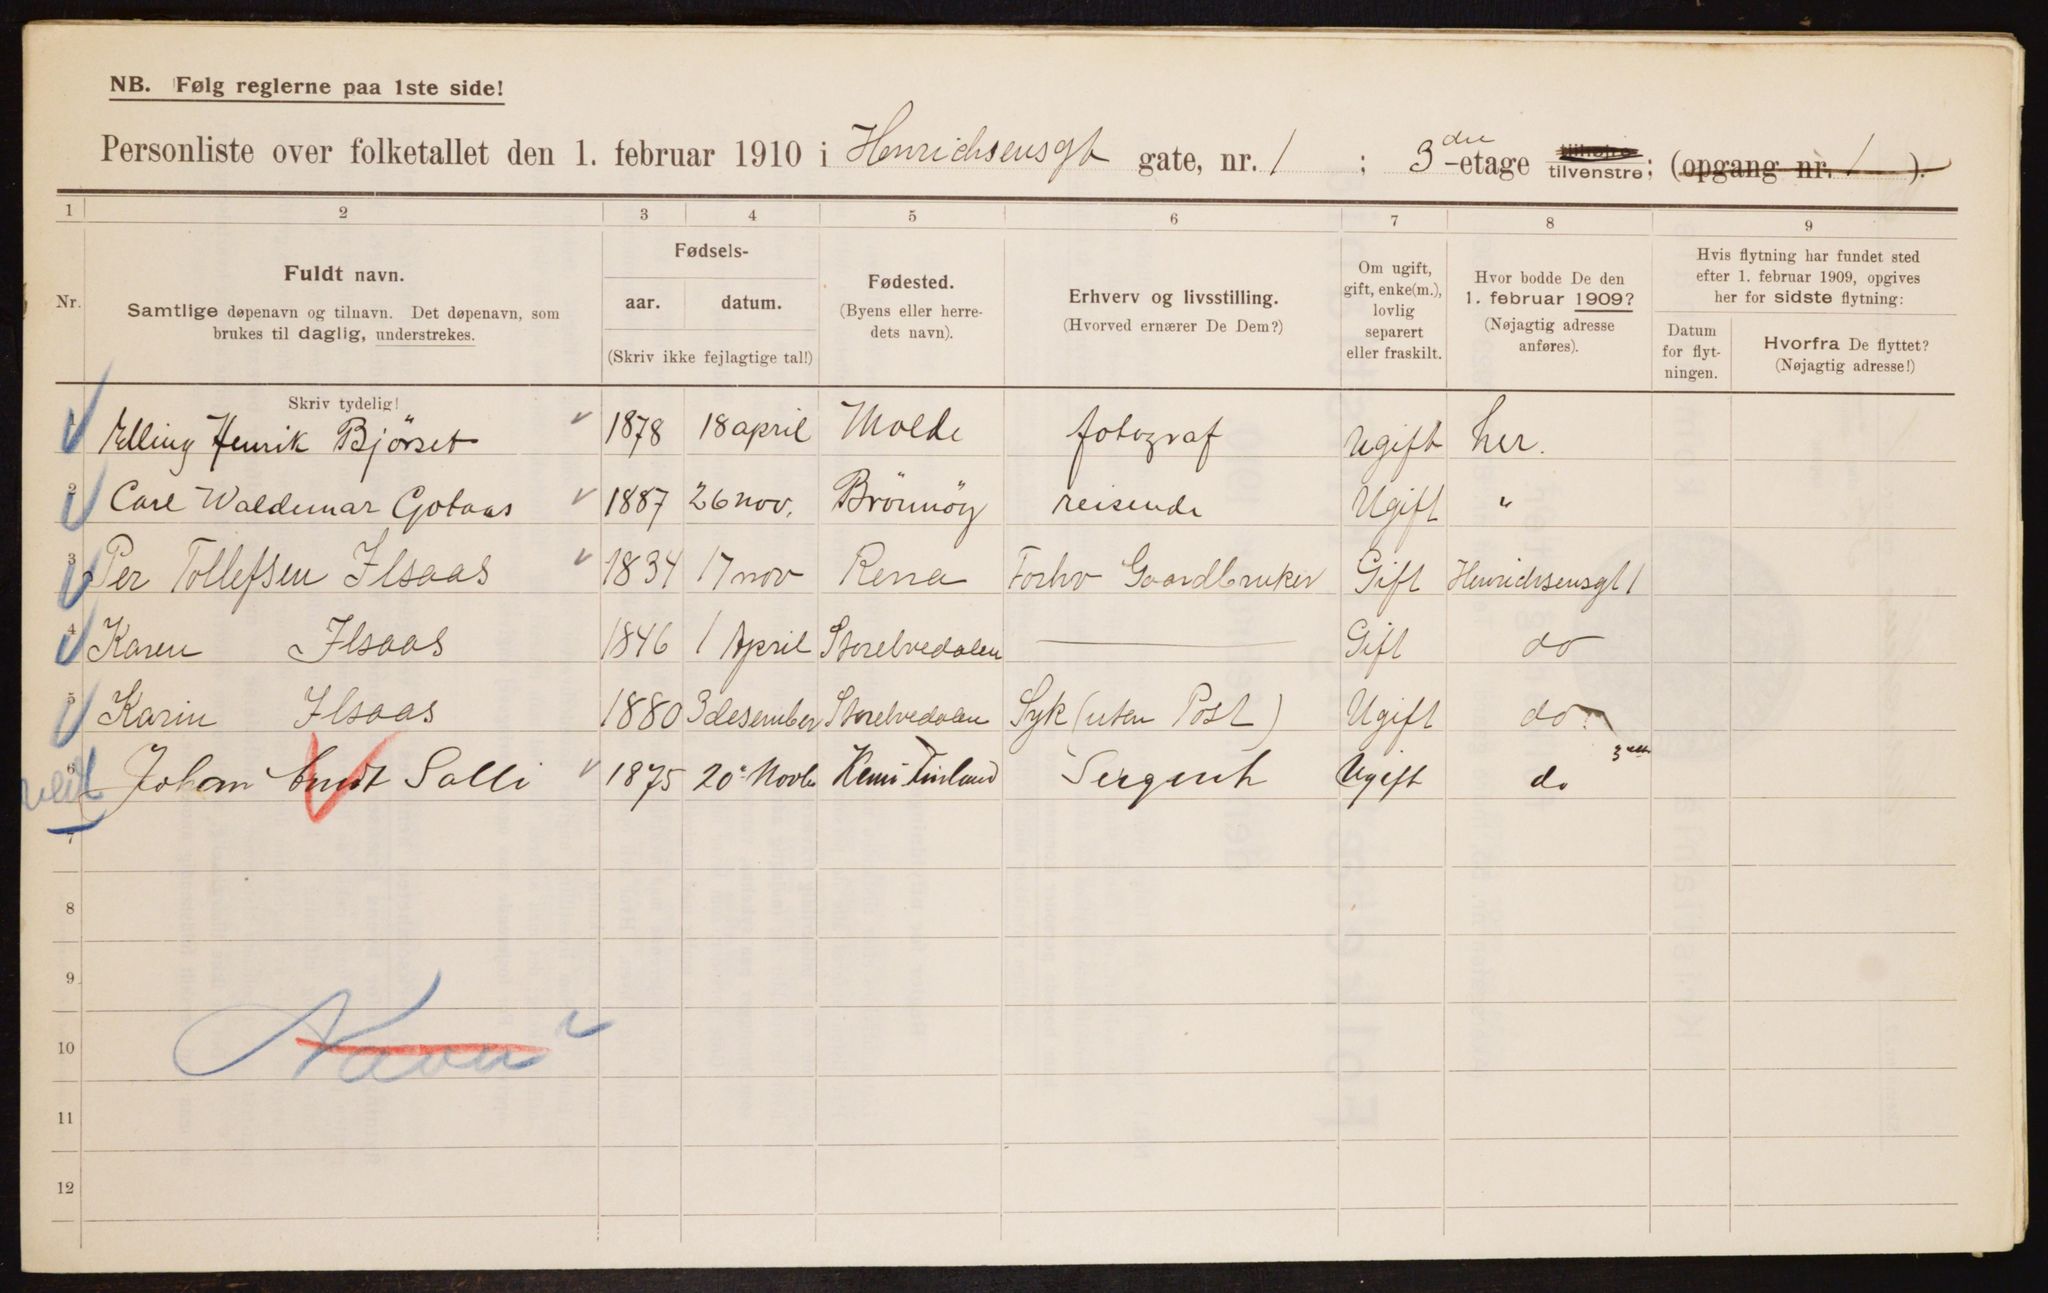 NB. Følg reglerne paa 1ste side!
Personliste over folketallet den 1. februar 1910 i Henrichsensgt gate, nr. 1 ; 3die-etage tilhøire tilvenstre; (opgang nr. 1 ).
1 2 3 4 5 6 7 8 9
Nr.
Fuldt navn.
Samtlige døpenavn og tilnavn. Det døpenavn, som
brukes til daglig, understrekes.
Skriv tydelig!
Fødsels-
aar. datum.
(Skriv ikke fejlagtige tal!)
Fødested.
(Byens eller herre-
dets navn).
Erhverv og livsstilling.
(Hvorved ernærer De Dem?)
Om ugift,
gift, enke(m.),
lovlig
separert
eller fraskilt.
Hvor bodde De den
1. februar 1909?
(Nøjagtig adresse
anføres).
Hvis flytning har fundet sted
efter 1. februar 1909, opgives
her for sidste flytning:
Datum
for flyt-
ningen.
Hvorfra De flyttet?
(Nøjagtig adresse!)
1 Elling Henrik Bjørset 1878 18 april Molde fotograf Ugift her.
2 Carl Waldemar Gotaas 1887 26 nov. Brönnöy reisende Ugift "
3 Per Tollefsen Ilsaas 1834 17 nov Rena Forhv Gaardbruker Gift Henrichsensgt 1
4 Karen Ilsaas 1846 1 April Storelvedalen Gift do
5 Karin Ilsaas 1880 3 desember Storelvedalen Syk (uten Post) Ugift do
6 Johan Salli 1875 20 Novbr Kemi Finland Sergent Ugift do
7
8
9
10
11
12